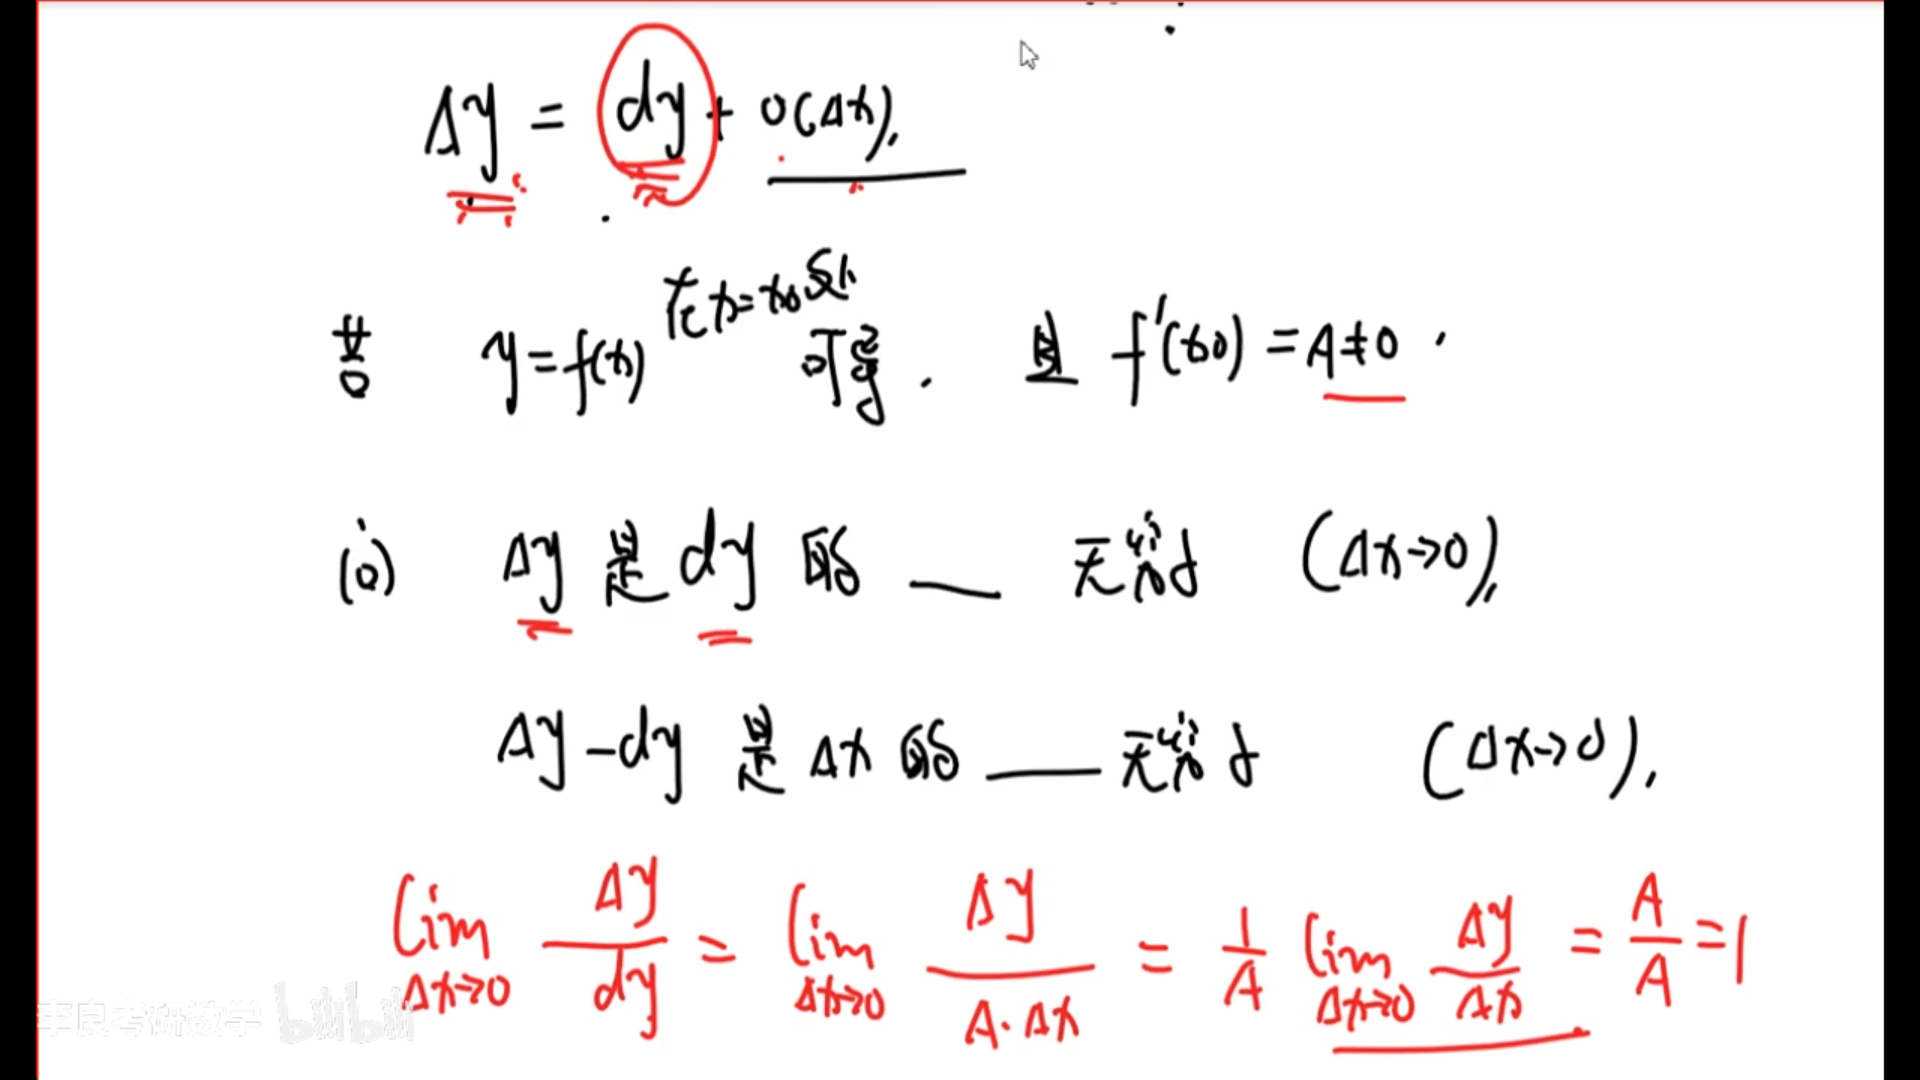 Δy = dy + o(Δx),
若 y=f(x) 在x=x0处 可导, 且 f'(x0)=A≠0.
(i) Δy 是 dy 的 ___ 无穷小 (Δx→0),
Δy-dy 是 Δx 的 ___ 无穷小 (Δx→0),
lim Δx→0 Δy/dy = lim Δx→0 Δy/(A·Δx) = 1/A lim Δx→0 Δy/Δx = A/A = 1
李良考研数学 bilibili